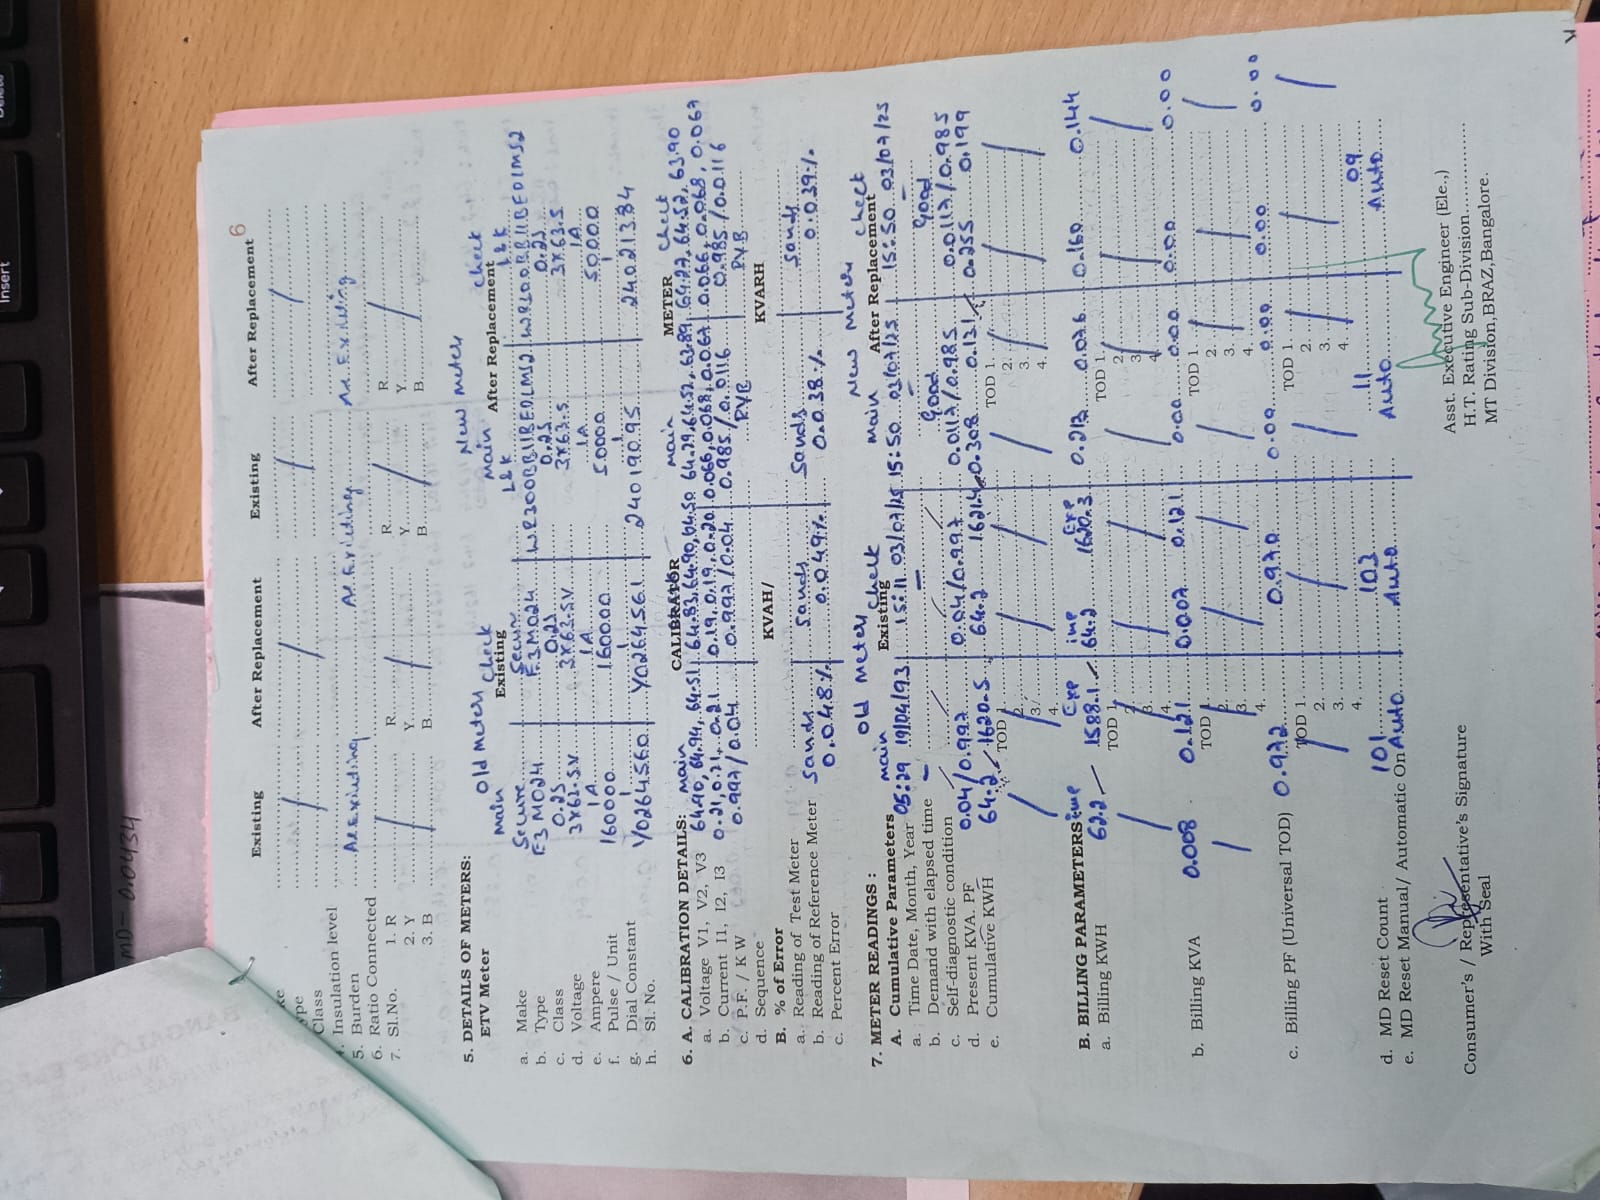 6
Existing After Replacement Existing After Replacement
Class
Insulation level
5. Burden As Existing As Existing As Existing
6. Ratio Connected
7. Sl.No. 1. R R R R
2. Y Y Y Y
3. B B B B
5. DETAILS OF METERS: Old Meter New Meter
ETV Meter Main Check Main Check
Existing After Replacement
a. Make Secure Secure L&K L&K
b. Type E3 M024 E3 M024
c. Class 0.2S 0.2S 0.2S 0.2S
d. Voltage 3X63.5V 3X63.5V 3X63.5 3X63.5
e. Ampere 1A 1A 1A 1A
f. Pulse / Unit 160000 160000 50000 50000
g. Dial Constant 1 1 1 1
h. Sl. No. Y0264560 Y0264561 24019095 24021384
6. A. CALIBRATION DETAILS: Main CALIBRATOR Main METER Check
a. Voltage V1, V2, V3 64.90, 64.94, 64.51 64.83, 64.90, 64.50 64.29, 64.52, 63.89 64.27, 64.52, 63.90
b. Current I1, I2, I3 0.21, 0.21, 0.21 0.19, 0.19, 0.20 0.066, 0.068, 0.067 0.066, 0.068, 0.067
c. P.F. / K W 0.997/0.04 0.997/0.04 0.985/0.0116 0.985/0.0116
d. Sequence RYB RYB
B. % of Error KVAH/ KVARH
a. Reading of Test Meter
b. Reading of Reference Meter Sands Sands Sands Sands
c. Percent Error 0.048% 0.049% 0.038% 0.039%
Old Meter New Meter
7. METER READINGS : Main Check Main Check
A. Cumulative Parameters Existing After Replacement
a. Time Date, Month, Year 05:29 19/04/93 15:11 03/07/25 15:50 03/07/25 15:50 03/07/25
b. Demand with elapsed time - - - -
c. Self-diagnostic condition Good Good
d. Present KVA. PF 0.04/0.997 0.04/0.997 0.0117/0.985 0.0117/0.985
e. Cumulative KWH 64.2 1620.5 64.2 1621.4 0.308 0.121 0.255 0.199
TOD 1. TOD 1.
2. 2.
3. 3.
4. 4.
B. BILLING PARAMETERS imp Exp imp Exp
a. Billing KWH 62.2 1588.1 64.2 1620.3 0.213 0.076 0.160 0.144
TOD 1. TOD 1.
2. 2.
3. 3.
4. 4.
b. Billing KVA 0.008 0.121 0.007 0.121 0.00 0.00 0.00 0.00
TOD 1. TOD 1
2. 2.
3. 3.
4. 4.
c. Billing PF (Universal TOD) 0.972 0.970 0.00 0.00 0.00 0.00
TOD 1. TOD 1.
2. 2.
3. 3.
4. 4.
d. MD Reset Count 101 103 11 09
e. MD Reset Manual/ Automatic On Auto Auto Auto Auto
Consumer's / Representative's Signature
With Seal
Asst. Executive Engineer (Ele.,)
H.T. Rating Sub-Division
MT Division, BRAZ, Bangalore.
MD - 0.0434
Insert